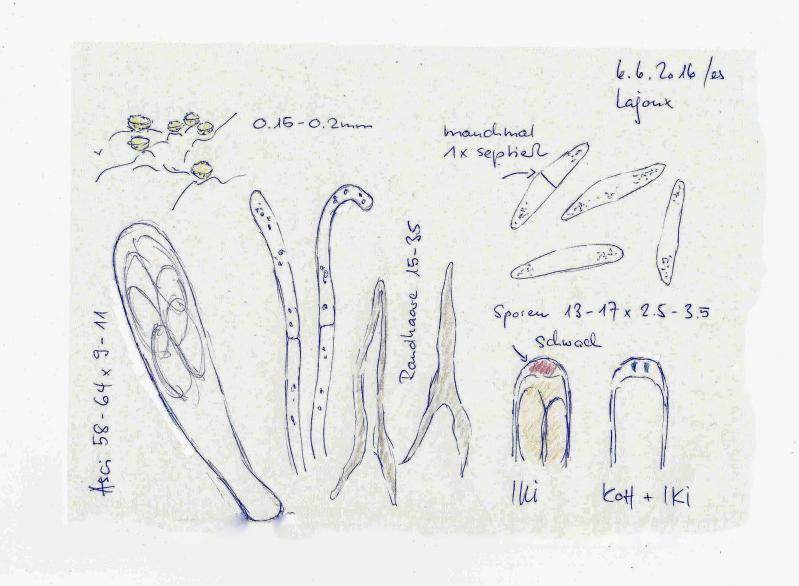 6.6.2016/es
Lajoux
0.15-0.2mm
manchmal
1x septiert
Asci 58-64 x 9-11
Randhaare 15-35
Sporen 13-17 x 2.5-3.5
schwach
IKi
KOH + IKi